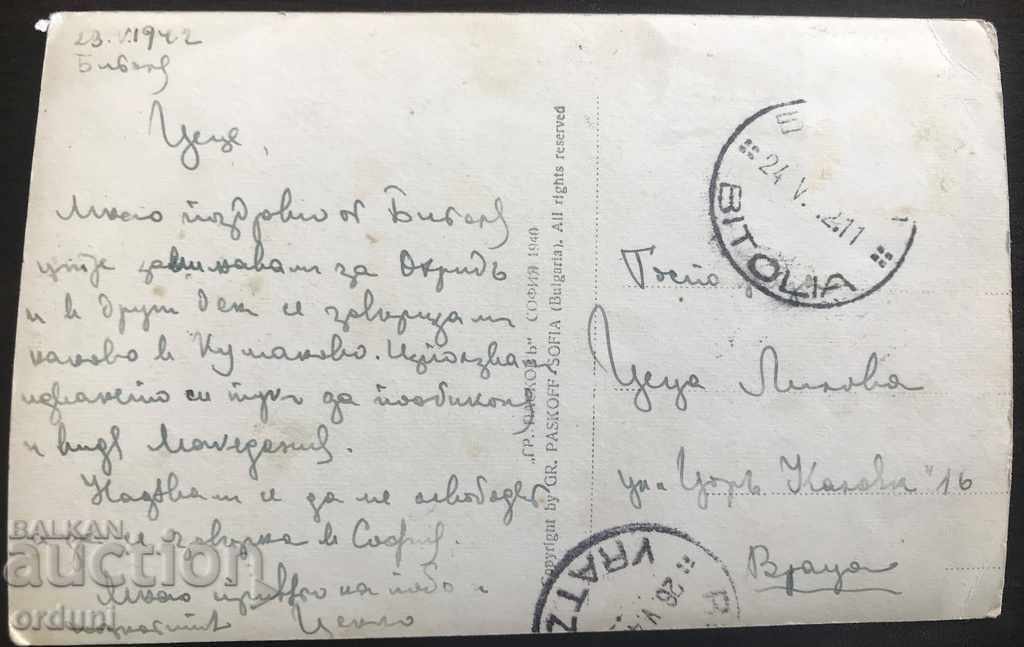 23.V.1942
Битоля
Цеце,
Много поздрави от Битоля
утре заминавам за Охридъ
и в друг ден се завръщам
наново в Куманово. Използвам
идването си тук да пообиколя
и видя Македония.
Надявам се да ме освободят
и се завърна в София.
Много привет на теб и
"ГР. ПАСКОВЪ" СОФИЯ 1940
Copyright by GR. PASKOFF - SOFIA (Bulgaria). All rights reserved
24.V.
11
BITOLIA
Госпо
Цеца
ул. "Цоръ Калоянъ" 16
Враца
KRATZ
26.V
BALKAN
auction
orduni